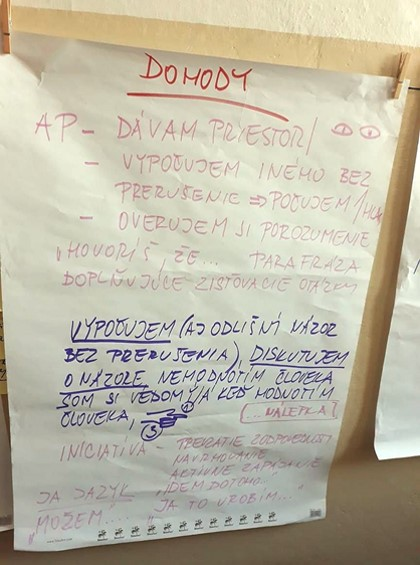 DOHODY
AP - DÁVAM PRIESTOR /
- VYPOČUJEM INÉHO BEZ
PRERUŠENIE ⇒ POČUJEM /
- OVERUJEM SI POROZUMENIE
"HOVORÍŠ, ŽE... PARAFRÁZA
DOPLŇUJÚCE ZISŤOVACIE OTÁZKY
VYPOČUJEM (AJ ODLIŠNÍ NÁZOR
BEZ PRERUŠENIA), DISKUTUJEM
O NÁZORE, NEHODNOTÍM ČLOVEKA
SOM SI VEDOMÝ/A KEĎ HODNOTÍM
ČLOVEKA,
(...NÁLEPKA)
INICIATÍVA - PREBRATIE ZODPOVEDNOSTI
NAVRHOVANIE
AKTÍVNE ZAPÁJANIE
"IDEM DO TOHO..."
JA JAZYK "JA TO UROBÍM..."
"MÔŽEM"...